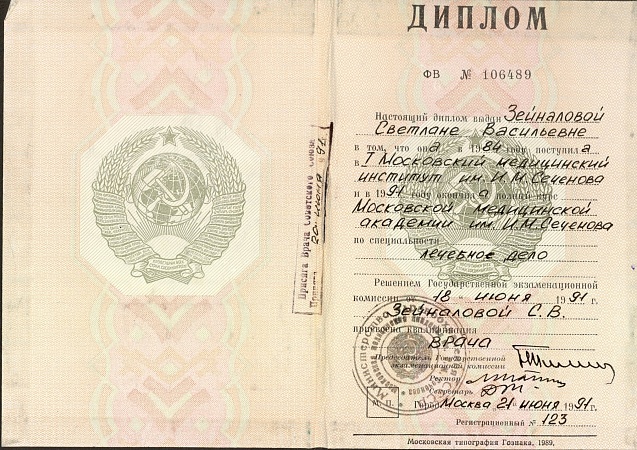 ДИПЛОМ
ФВ № 106489
Настоящий диплом выдан Зейналовой
Светлане Васильевне
в том, что она в 1984 году поступила
в I Московский медицинский
институт им. И.М. Сеченова
и в 1991 году окончила полный курс
Московской медицинской
академии им. И.М. Сеченова
по специальности
лечебное дело
Решением Государственной экзаменационной
комиссии от 18 июня 1991 г.
Зейналовой С.В.
присвоена квалификация
врача
Председатель Государственной
экзаменационной комиссии
Ректор
Секретарь
М.П. Город Москва 21 июня 1991 г.
Регистрационный № 123
Московская типография Гознака, 1989.
Присяга Врача Советского Союза
июня 91